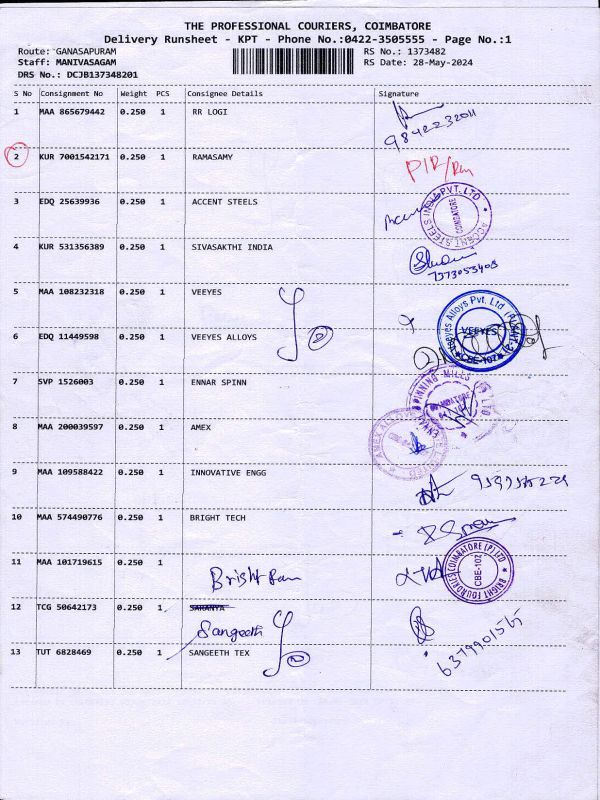 THE PROFESSIONAL COURIERS, COIMBATORE
Delivery Runsheet - KPT - Phone No.:0422-3505555 - Page No.:1
Route: GANASAPURAM RS No.: 1373482
Staff: MANIVASAGAM RS Date: 28-May-2024
DRS No.: DCJB137348201
S No Consignment No Weight PCS Consignee Details Signature
1 MAA 865679442 0.250 1 RR LOGI
9842232011
2 KUR 7001542171 0.250 1 RAMASAMY
3 EDQ 25639936 0.250 1 ACCENT STEELS
ACCENT STEELS INDIA PVT. LTD
COIMBATORE
4 KUR 531356389 0.250 1 SIVASAKTHI INDIA
7373053408
5 MAA 108232318 0.250 1 VEEYES
Veeyes Alloys Pvt. Ltd
VEEYES
CBE-107
6 EDQ 11449598 0.250 1 VEEYES ALLOYS
2
7 SVP 1526003 0.250 1 ENNAR SPINN
ENNAR SPINNING MILLS (P) LTD
COIMBATORE
8 MAA 200039597 0.250 1 AMEX
AMEX ALLOYS
9 MAA 109588422 0.250 1 INNOVATIVE ENGG
10 MAA 574490776 0.250 1 BRIGHT TECH
11 MAA 101719615 0.250 1
Bright
BRIGHT FOUNDRIES COIMBATORE (P) LTD
CBE-107
12 TCG 50642173 0.250 1 SARANYA
Sangeeth
13 TUT 6828469 0.250 1 SANGEETH TEX
6379901565